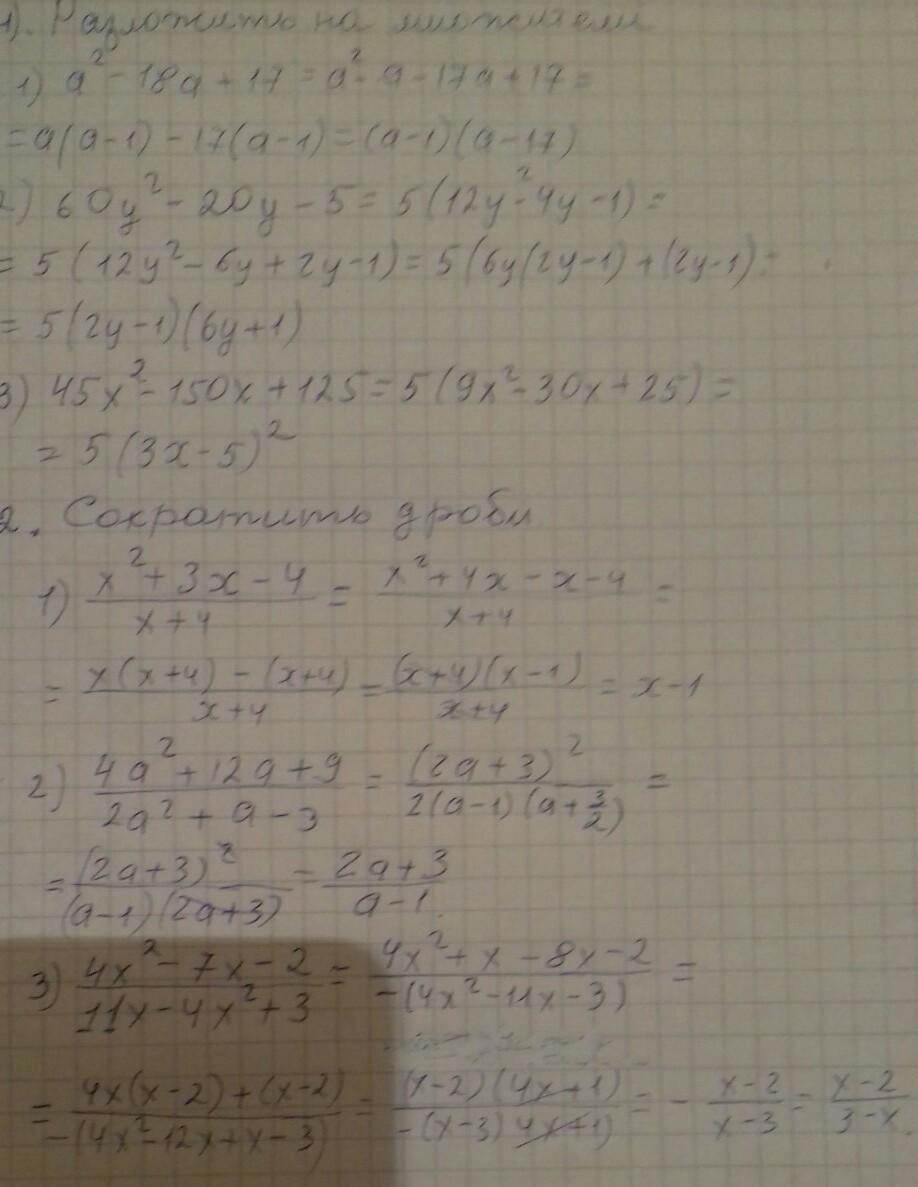 1). Разложить на множители
1) a² - 18a + 17 = a² - a - 17a + 17 =
= a(a-1) - 17(a-1) = (a-1)(a-17)
2) 60y² - 20y - 5 = 5(12y² - 4y - 1) =
= 5(12y² - 6y + 2y - 1) = 5(6y(2y-1) + (2y-1) =
= 5(2y-1)(6y+1)
3) 45x² - 150x + 125 = 5(9x² - 30x + 25) =
= 5(3x-5)²
2. Сократить дроби
1) (x² + 3x - 4)/(x+4) = (x² + 4x - x - 4)/(x+4) =
= (x(x+4) - (x+4))/(x+4) = ((x+4)(x-1))/(x+4) = x-1
2) (4a² + 12a + 9)/(2a² + a - 3) = (2a+3)²/(2(a-1)(a+3/2)) =
= (2a+3)²/((a-1)(2a+3)) = (2a+3)/(a-1)
3) (4x² - 7x - 2)/(11x - 4x² + 3) = (4x² + x - 8x - 2)/(-(4x² - 11x - 3)) =
= (4x(x-2) + (x-2))/(-(4x² - 12x + x - 3)) = ((x-2)(4x+1))/(-(x-3)(4x+1)) = - (x-2)/(x-3) = (x-2)/(3-x).